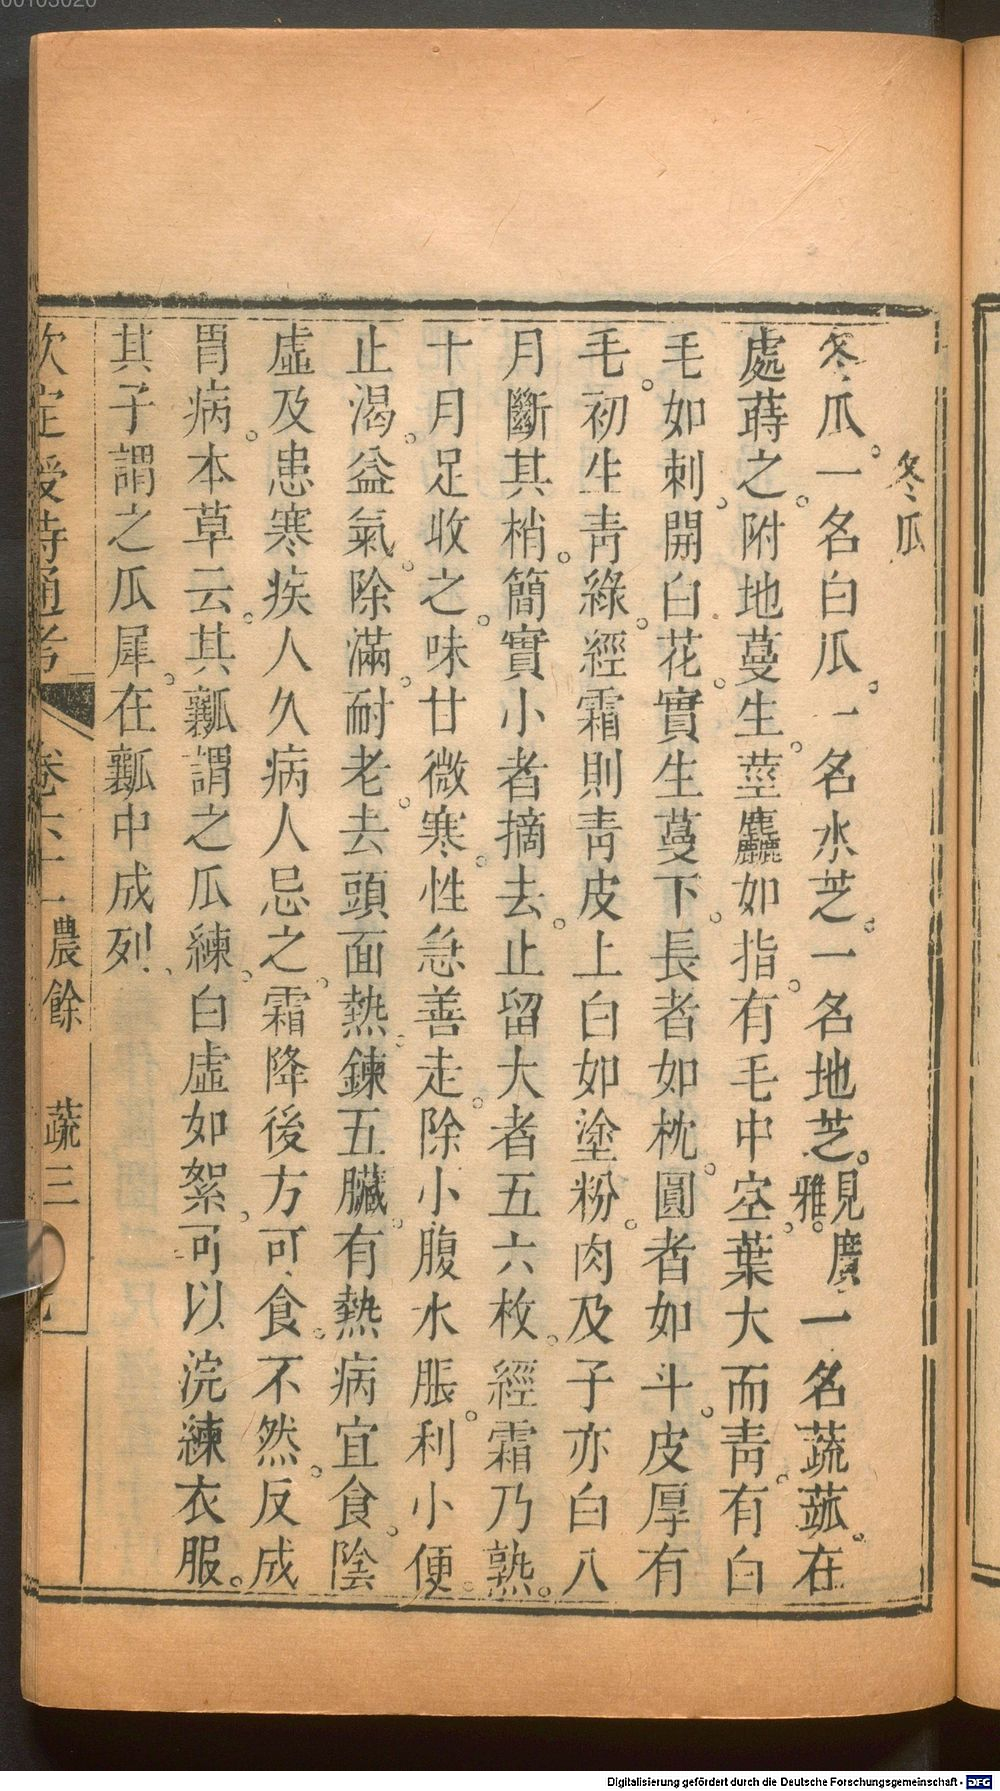 冬瓜
冬瓜。一名白瓜。一名水芝。一名地芝。見廣雅。一名蔬蓏。在
處蒔之。附地蔓生。莖麤如指。有毛中空。葉大而青。有白
毛如刺。開白花。實生蔓下。長者如枕。圓者如斗。皮厚有
毛。初生青綠。經霜則青皮上白如塗粉。肉及子亦白八
月斷其梢。簡實小者摘去。止留大者五六枚。經霜乃熟。
十月足收之。味甘微寒。性急善走。除小腹水脹。利小便。
止渴。益氣。除滿。耐老。去頭面熱。鍊五臟。有熱病宜食。陰
虛及患寒疾人久病人忌之。霜降後方可食。不然。反成
胃病。本草云。其瓤謂之瓜練。白虛如絮。可以浣練衣服。
其子謂之瓜犀。在瓤中成列。
欽定授時通考 卷六十一農餘 蔬三
00103020
Digitalisierung gefördert durch die Deutsche Forschungsgemeinschaft - DFG